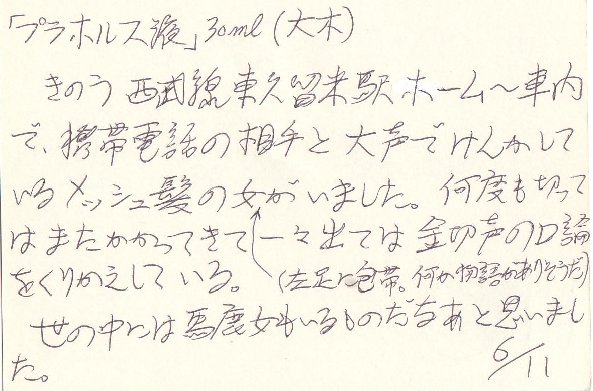 「プラホルス液」30ml（大木）
きのう西武線東久留米駅ホーム〜車内
で、携帯電話の相手と大声でけんかして
いるメッシュ髪の女がいました。何度も切って
はまたかかってきて一々出ては金切声の口論
をくりかえしている。（左足に包帯。何か物語がありそうだ）
世の中には馬鹿女もいるものだなあと思いまし
た。 6/11